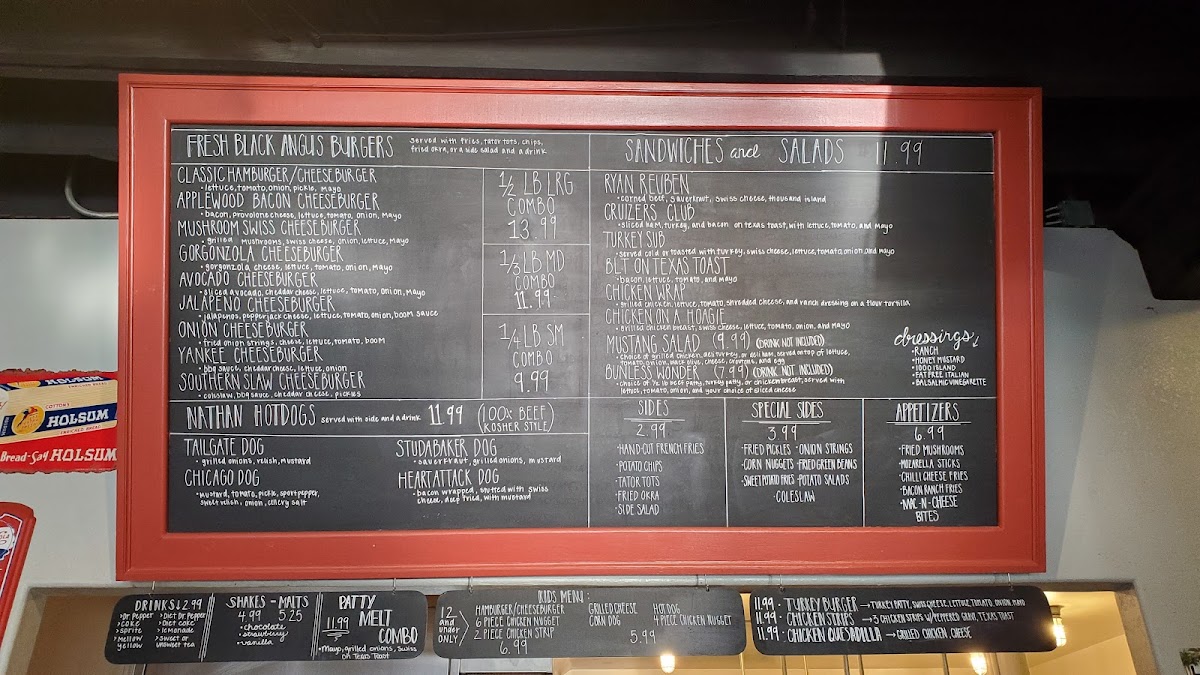 FRESH BLACK ANGUS BURGERS
served with fries, tator tots, chips,
fried okra, or a side salad and a drink
CLASSIC HAMBURGER/CHEESEBURGER
• lettuce, tomato, onion, pickle, mayo
APPLEWOOD BACON CHEESEBURGER
• bacon, provolone cheese, lettuce, tomato, onion, mayo
MUSHROOM SWISS CHEESEBURGER
• grilled mushrooms, swiss cheese, onion, lettuce, mayo
GORGONZOLA CHEESEBURGER
• gorgonzola cheese, lettuce, tomato, onion, mayo
AVOCADO CHEESEBURGER
• sliced avocado, cheddar cheese, lettuce, tomato, onion, mayo
JALAPENO CHEESEBURGER
• jalapenos, pepperjack cheese, lettuce, tomato, onion, boom sauce
ONION CHEESEBURGER
• fried onion strings, cheese, lettuce, tomato, boom
YANKEE CHEESEBURGER
• bbq sauce, cheddar cheese, lettuce, onion
SOUTHERN SLAW CHEESEBURGER
• coleslaw, bbq sauce, cheddar cheese, pickles
1/2 LB LRG
COMBO
13.99
1/3 LB MD
COMBO
11.99
1/4 LB SM
COMBO
9.99
NATHAN HOTDOGS served with side and a drink 11.99 (100% BEEF
KOSHER STYLE)
TAILGATE DOG
• grilled onions, relish, mustard
CHICAGO DOG
• mustard, tomato, pickle, sport pepper,
sweet relish, onion, celery salt
STUDABAKER DOG
• sauerkraut, grilled onions, mustard
HEARTATTACK DOG
• bacon wrapped, stuffed with swiss
cheese, deep fried, with mustard
SANDWICHES and SALADS 11.99
RYAN REUBEN
• corned beef, sauerkraut, swiss cheese, thousand island
CRUIZERS CLUB
• sliced ham, turkey, and bacon on texas toast, with lettuce, tomato, and mayo
TURKEY SUB
• served cold or toasted with turkey, swiss cheese, lettuce, tomato, onion and mayo
BLT ON TEXAS TOAST
• bacon, lettuce, tomato, and mayo
CHICKEN WRAP
• grilled chicken, lettuce, tomato, shredded cheese, and ranch dressing on a flour tortilla
CHICKEN ON A HOAGIE
• grilled chicken breast, swiss cheese, lettuce, tomato, onion, and mayo
MUSTANG SALAD (9.99) (DRINK NOT INCLUDED)
• choice of grilled chicken, deli turkey, or deli ham, served on top of lettuce,
tomato, onion, black olive, cheese, croutons, and egg
BUNLESS WONDER (7.99) (DRINK NOT INCLUDED)
• choice of 1/2 lb beef patty, turkey patty, or chicken breast, served with
lettuce, tomato, onion, and your choice of sliced cheese
dressings
• RANCH
• HONEY MUSTARD
• 1000 ISLAND
• FAT FREE ITALIAN
• BALSALMIC VINEGARETTE
SIDES
2.99
• HAND-CUT FRENCH FRIES
• POTATO CHIPS
• TATOR TOTS
• FRIED OKRA
• SIDE SALAD
SPECIAL SIDES
3.99
• FRIED PICKLES • ONION STRINGS
• CORN NUGGETS • FRIED GREEN BEANS
• SWEET POTATO FRIES • POTATO SALADS
• COLESLAW
APPETIZERS
6.99
• FRIED MUSHROOMS
• MOZARELLA STICKS
• CHILLI CHEESE FRIES
• BACON RANCH FRIES
• MAC-N-CHEESE
BITES
HOLSUM
HOLSUM
ENRICHED BREAD
Bread-Say HOLSUM
DRINKS 2.99
>Dr Pepper
>coke
>sprite
>mellow
yellow
>Diet Dr Pepper
>Diet coke
>lemonade
>sweet or
unsweet tea
SHAKES - MALTS
4.99 5.25
• chocolate
• strawberry
• vanilla
PATTY
11.99 MELT
COMBO
• Mayo, grilled onions, Swiss
on Texas Toast
KIDS MENU:
12
and
under
ONLY
HAMBURGER/CHEESEBURGER
6 PIECE CHICKEN NUGGET
2 PIECE CHICKEN STRIP
6.99
GRILLED CHEESE
CORN DOG
HOT DOG
4 PIECE CHICKEN NUGGET
5.99
11.99 - TURKEY BURGER → TURKEY PATTY, SWISS CHEESE, LETTUCE, TOMATO, ONION, MAYO
11.99 - CHICKEN STRIPS → 3 CHICKEN STRIPS W/ PEPPERED GRAVY, TEXAS TOAST
11.99 - CHICKEN QUESADILLA → GRILLED CHICKEN, CHEESE